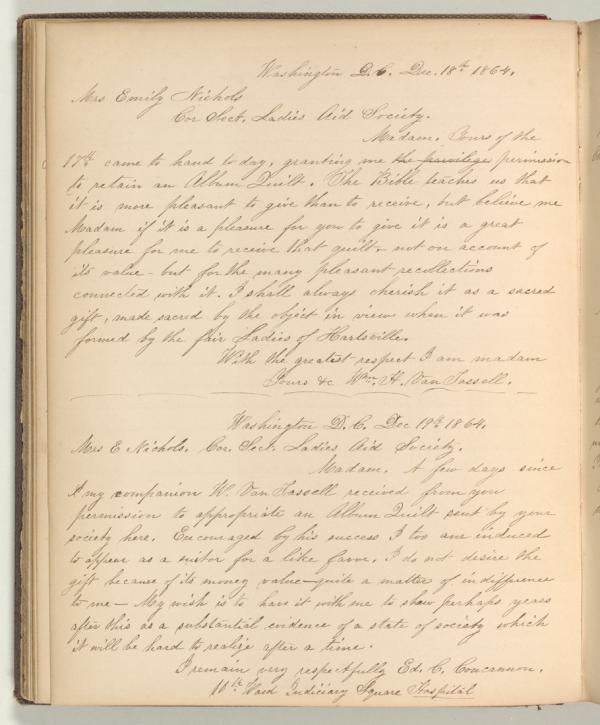 Washington D.C. Dec. 18th 1864.
Mrs Emily Nichols
Cor Sect. Ladies Aid Society.
Madam. Yours of the
17th came to hand to day, granting me the privilege permission
to retain an Album Quilt. The Bible teaches us that
it is more pleasant to give than to receive, but believe me
Madam if it is a pleasure for you to give it is a great
pleasure for me to receive that quilt - not on account of
its value - but for the many pleasant recollections
connected with it. I shall always cherish it as a sacred
gift, made sacred by the object in view when it was
formed by the fair Ladies of Hartsville.
With the greatest respect I am madam
Yours &c Wm. H. Van Tassell.
Washington D.C. Dec 19th 1864.
Mrs E Nichols. Cor. Sect. Ladies Aid Society.
Madam. A few days since
my companion W. Van Tassell received from you
permission to appropriate an Album Quilt sent by your
society here. Encouraged by his success I too am induced
to appear as a suitor for a like favor. I do not desire the
gift because of its money value - quite a matter of indifference
to me - My wish is to have it with me to show perhaps years
after this as a substantial evidence of a state of society which
it will be hard to realize after a time.
I remain very respectfully Ed. C. Concannon.
10th Ward Judiciary Square Hospital